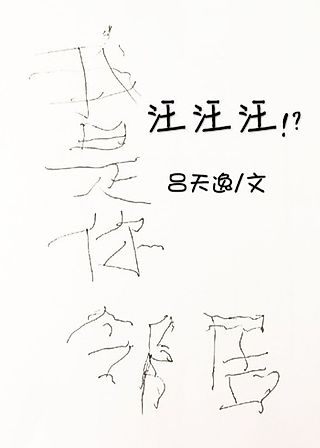 我是你邻居
汪汪汪!?
吕天逸/文